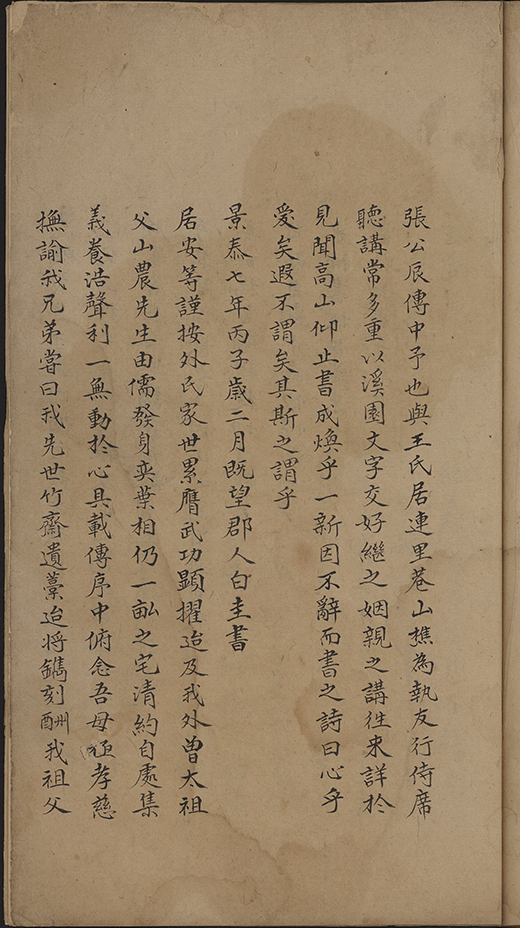 張公辰傳中予也與王氏居連里巷山樵為執友行侍席
聽講常多重以溪園文字交好繼之姻親之講徃来詳於
見聞高山仰止書成煥乎一新因不辭而書之詩曰心乎
愛矣遐不謂矣其斯之謂乎
景泰七年丙子歲二月既望郡人白圭書
居安等謹按外氏家世累膺武功顕擢迨及我外曾太祖
父山農先生由儒發身奕葉相仍一畝之宅清約自處集
義養浩聲利一無動於心具載傳序中俯念吾母孝慈
撫諭我兄弟嘗曰我先世竹齋遺藁迨将鐫刻酬我祖父